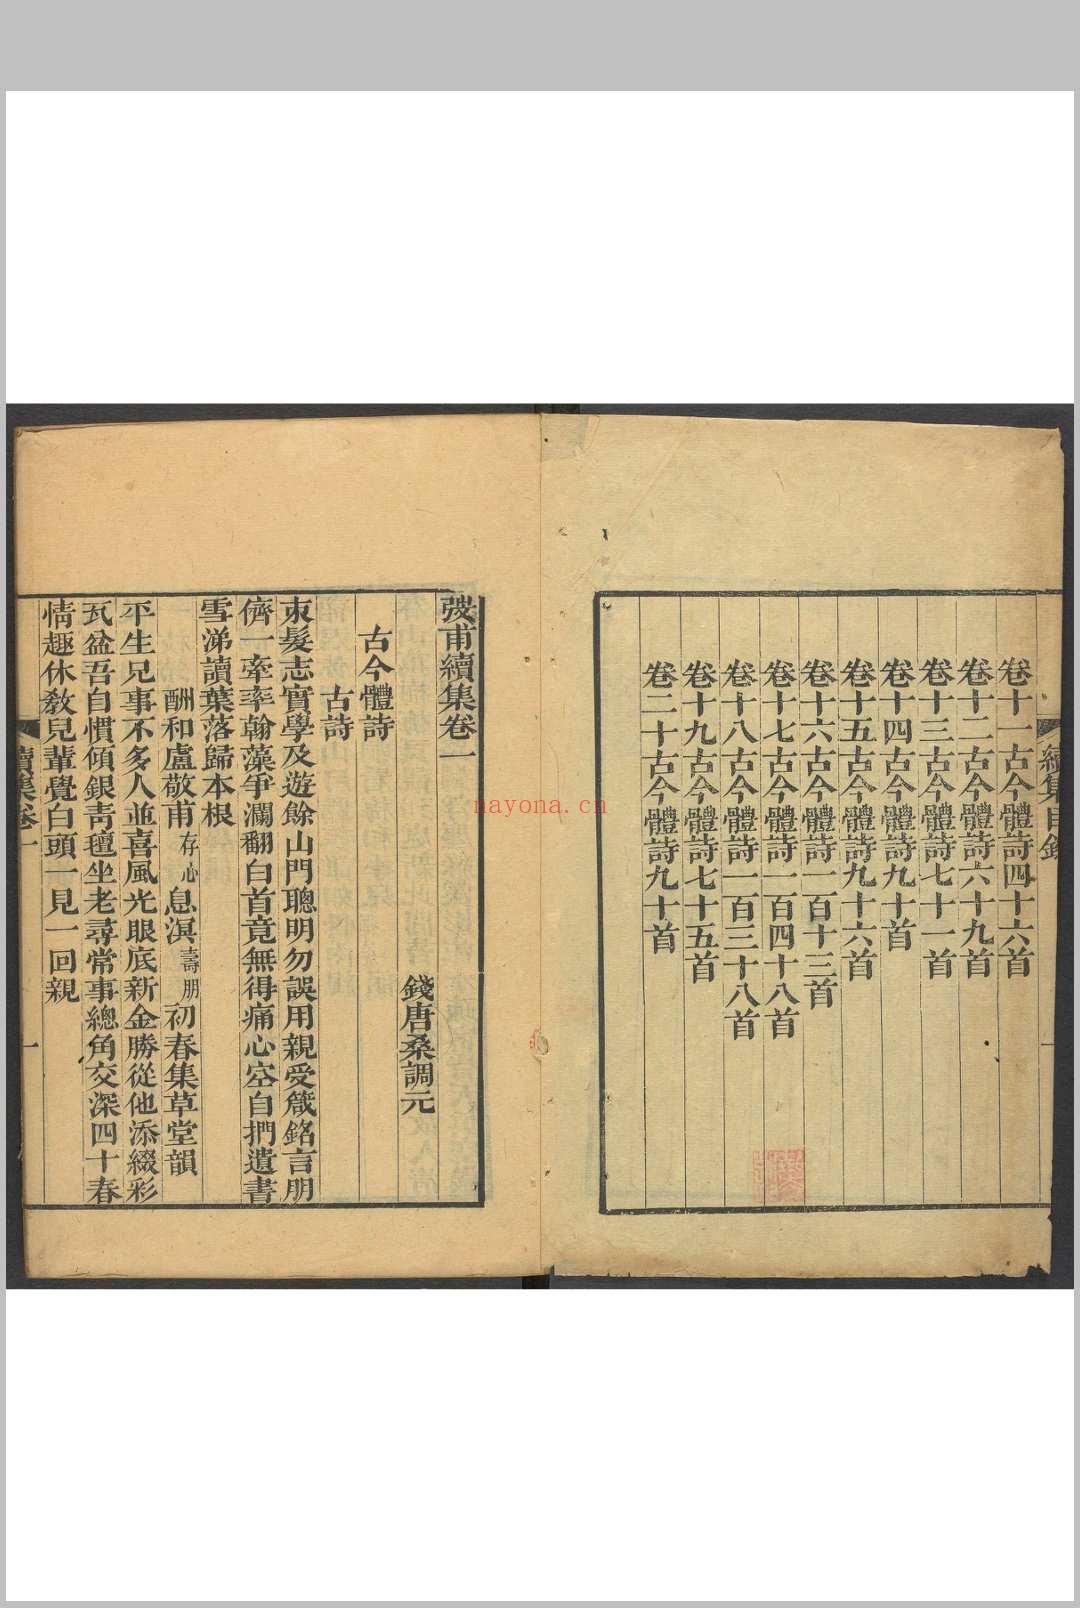 卷十一古今體詩四十六首
卷十二古今體詩六十九首
卷十三古今體詩七十一首
卷十四古今體詩九十首
卷十五古今體詩九十六首
卷十六古今體詩一百十三首
卷十七古今體詩一百四十八首
卷十八古今體詩一百三十八首
卷十九古今體詩七十五首
卷二十古今體詩九十首
續集目錄
一
弢甫續集卷一
錢唐桑調元
古今體詩
古詩
束髮志實學及遊餘山門聰明勿誤用親受箴銘言朋
儕一牽率翰藻爭瀾翻白首竟無得痛心空自捫遺書
雪涕讀葉落歸本根
酬和盧敬甫存心息溟壽朋初春集草堂韻
平生兄事不多人並喜風光眼底新金勝從他添綴彩
瓦盆吾自慣傾銀靑氊坐老尋常事總角交深四十春
情趣休敎兒輩覺白頭一見一回親
續集卷一
一
nayona.cn